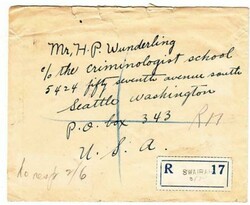 Mr. H. P. Wunderling
c/o the criminologist school
5424 fifty seventh avenue south
Seattle Washington
P.O. box 343
R17
U. S. A.
2/6
R 17